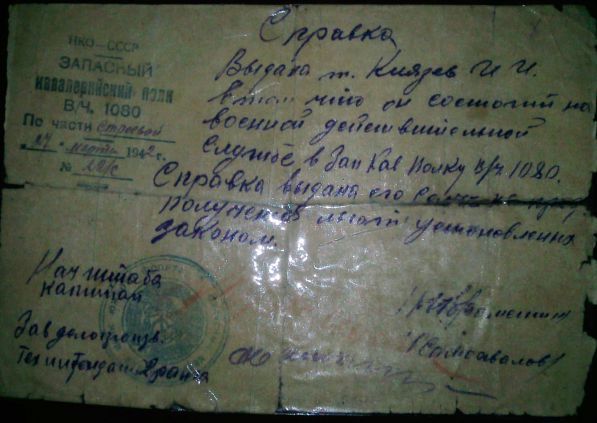 НКО-СССР
ЗАПАСНЫЙ
кавалерийский полк
В/Ч. 1080
По части строевой
27 марта 1942 г.
№
Справка
Выдана т. Князев И. И.
в том что он состоит на
военной действительной
службе в Зап Кав Полку в/ч. 1080.
Справка выдана его
получения льгот установлен
законом.
Нач штаба
капитан
Зав делопроизв.
Техинтендант 2 ранга
/Самохвалов/